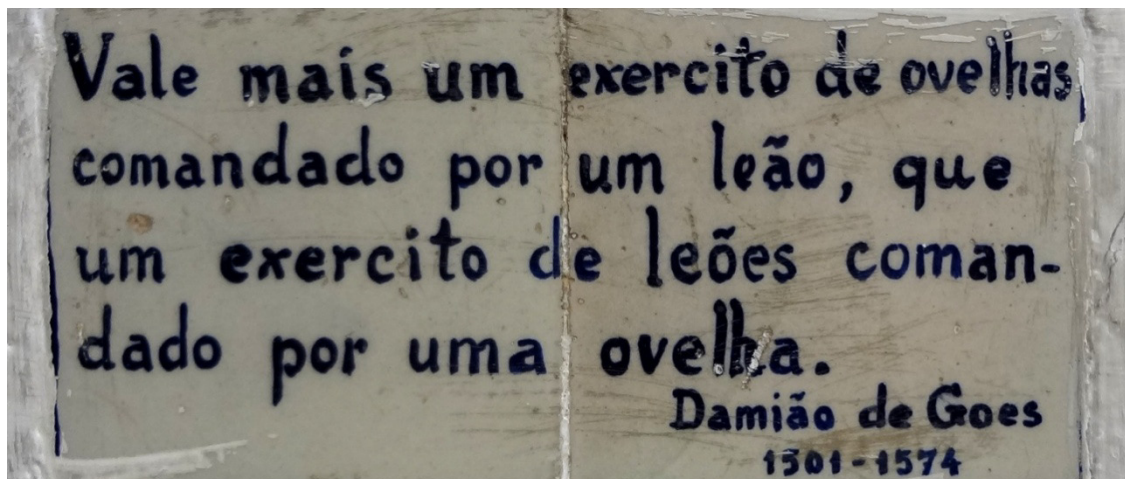 Vale mais um exercito de ovelhas
comandado por um leão, que
um exercito de leões coman-
dado por uma ovelha.
Damião de Goes
1501-1574